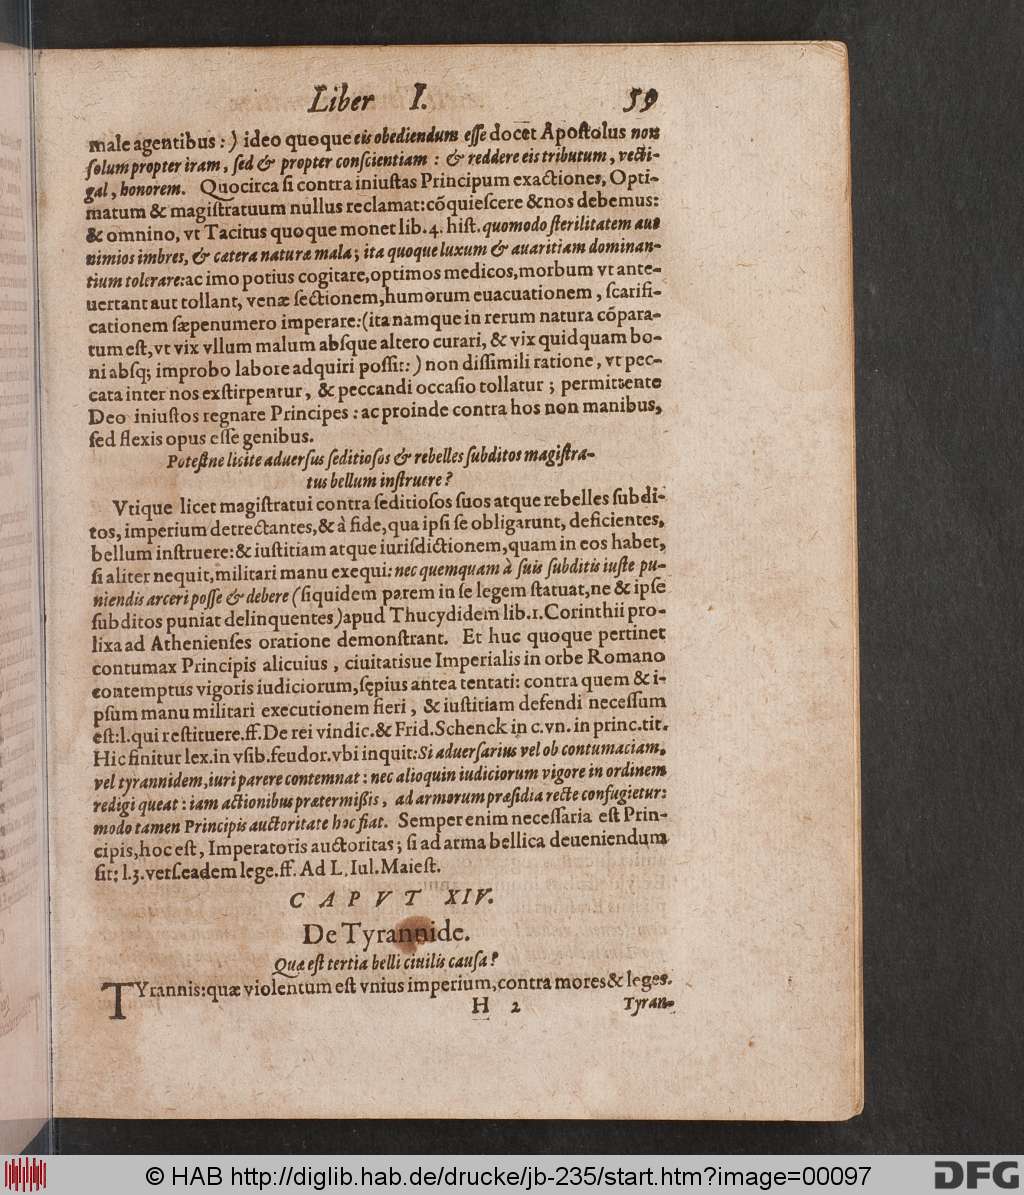 Liber I. 59
male agentibus :) ideo quoque eis obediendum esse docet Apostolus non
solum propter iram, sed & propter conscientiam : & reddere eis tributum, vecti-
gal, honorem. Quocirca si contra iniustas Principum exactiones, Opti-
matum & magistratuum nullus reclamat: cõquiescere & nos debemus:
& omnino, vt Tacitus quoque monet lib. 4. hist. quomodo sterilitatem aut
nimios imbres, & cætera naturæ mala ; ita quoque luxum & auaritiam dominan-
tium tolerare: ac imo potius cogitare, optimos medicos, morbum vt ante-
uertant aut tollant, venæ sectionem, humorum euacuationem, scarifi-
cationem sæpenumero imperare: (ita namque in rerum natura cõpara-
tum est, vt vix vllum malum absque altero curari, & vix quidquam bo-
ni absq; improbo labore adquiri possit: ) non dissimili ratione, vt pec-
cata inter nos exstirpentur, & peccandi occasio tollatur ; permittente
Deo iniustos regnare Principes : ac proinde contra hos non manibus,
sed flexis opus esse genibus.
Potestne licite aduersus seditiosos & rebelles subditos magistra-
tus bellum instruere?
Vtique licet magistratui contra seditiosos suos atque rebelles subdi-
tos, imperium detrectantes, & à fide, qua ipsi se obligarunt, deficientes,
bellum instruere: & iustitiam atque iurisdictionem, quam in eos habet,
si aliter nequit, militari manu exequi: nec quemquam à suis subditis iuste pu-
niendis arceri posse & debere (siquidem parem in se legem statuat, ne & ipse
subditos puniat delinquentes) apud Thucydidem lib. 1. Corinthii pro-
lixa ad Athenienses oratione demonstrant. Et huc quoque pertinet
contumax Principis alicuius, ciuitatisue Imperialis in orbe Romano
contemptus vigoris iudiciorum, sępius antea tentati: contra quem & i-
psum manu militari executionem fieri, & iustitiam defendi necessum
est: l. qui restituere. ff. De rei vindic. & Frid. Schenck in c. vn. in princ. tit.
Hic finitur lex. in vsib. feudor. vbi inquit: Si aduersarius vel ob contumaciam,
vel tyrannidem, iuri parere contemnat : nec alioquin iudiciorum vigore in ordinem
redigi queat : iam actionibus prætermißis, ad armorum præsidia recte confugietur:
modo tamen Principis auctoritate hoc fiat. Semper enim necessaria est Prin-
cipis, hoc est, Imperatoris auctoritas ; si ad arma bellica deueniendum
sit: l. 3. vers. eadem lege. ff. Ad L. Iul. Maiest.
CAPVT XIV.
De Tyrannide.
Quæ est tertia belli ciuilis causa?
TYrannis: quæ violentum est vnius imperium, contra mores & leges.
H 2 Tyran-
© HAB http://diglib.hab.de/drucke/jb-235/start.htm?image=00097
DFG